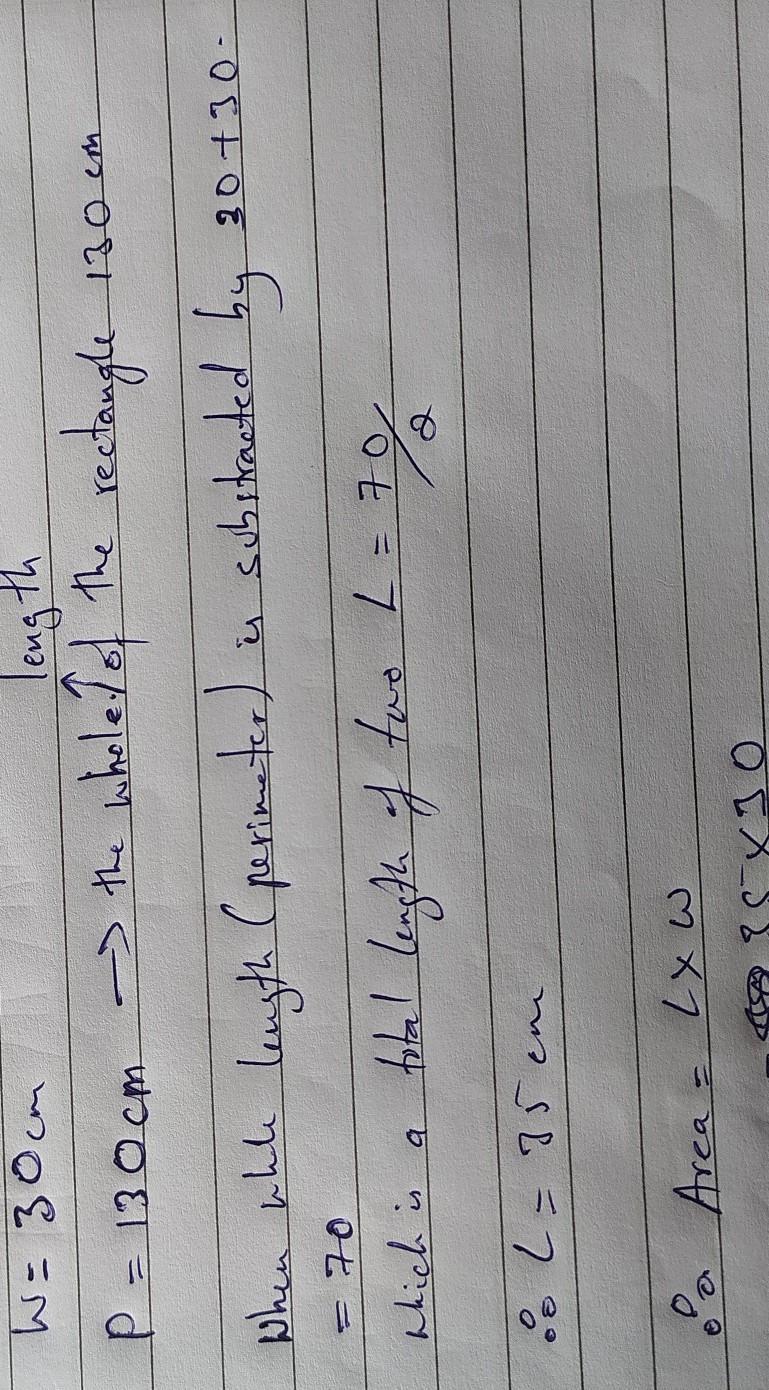 length
W = 30cm
P = 130cm → the whole ↑ of the rectangle 130 cm
When whole length (perimeter) is substracted by 30+30.
= 70
which is a total length of two L = 70/2
∴ L = 35 cm
∴ Area = L x W
= 35 x 30